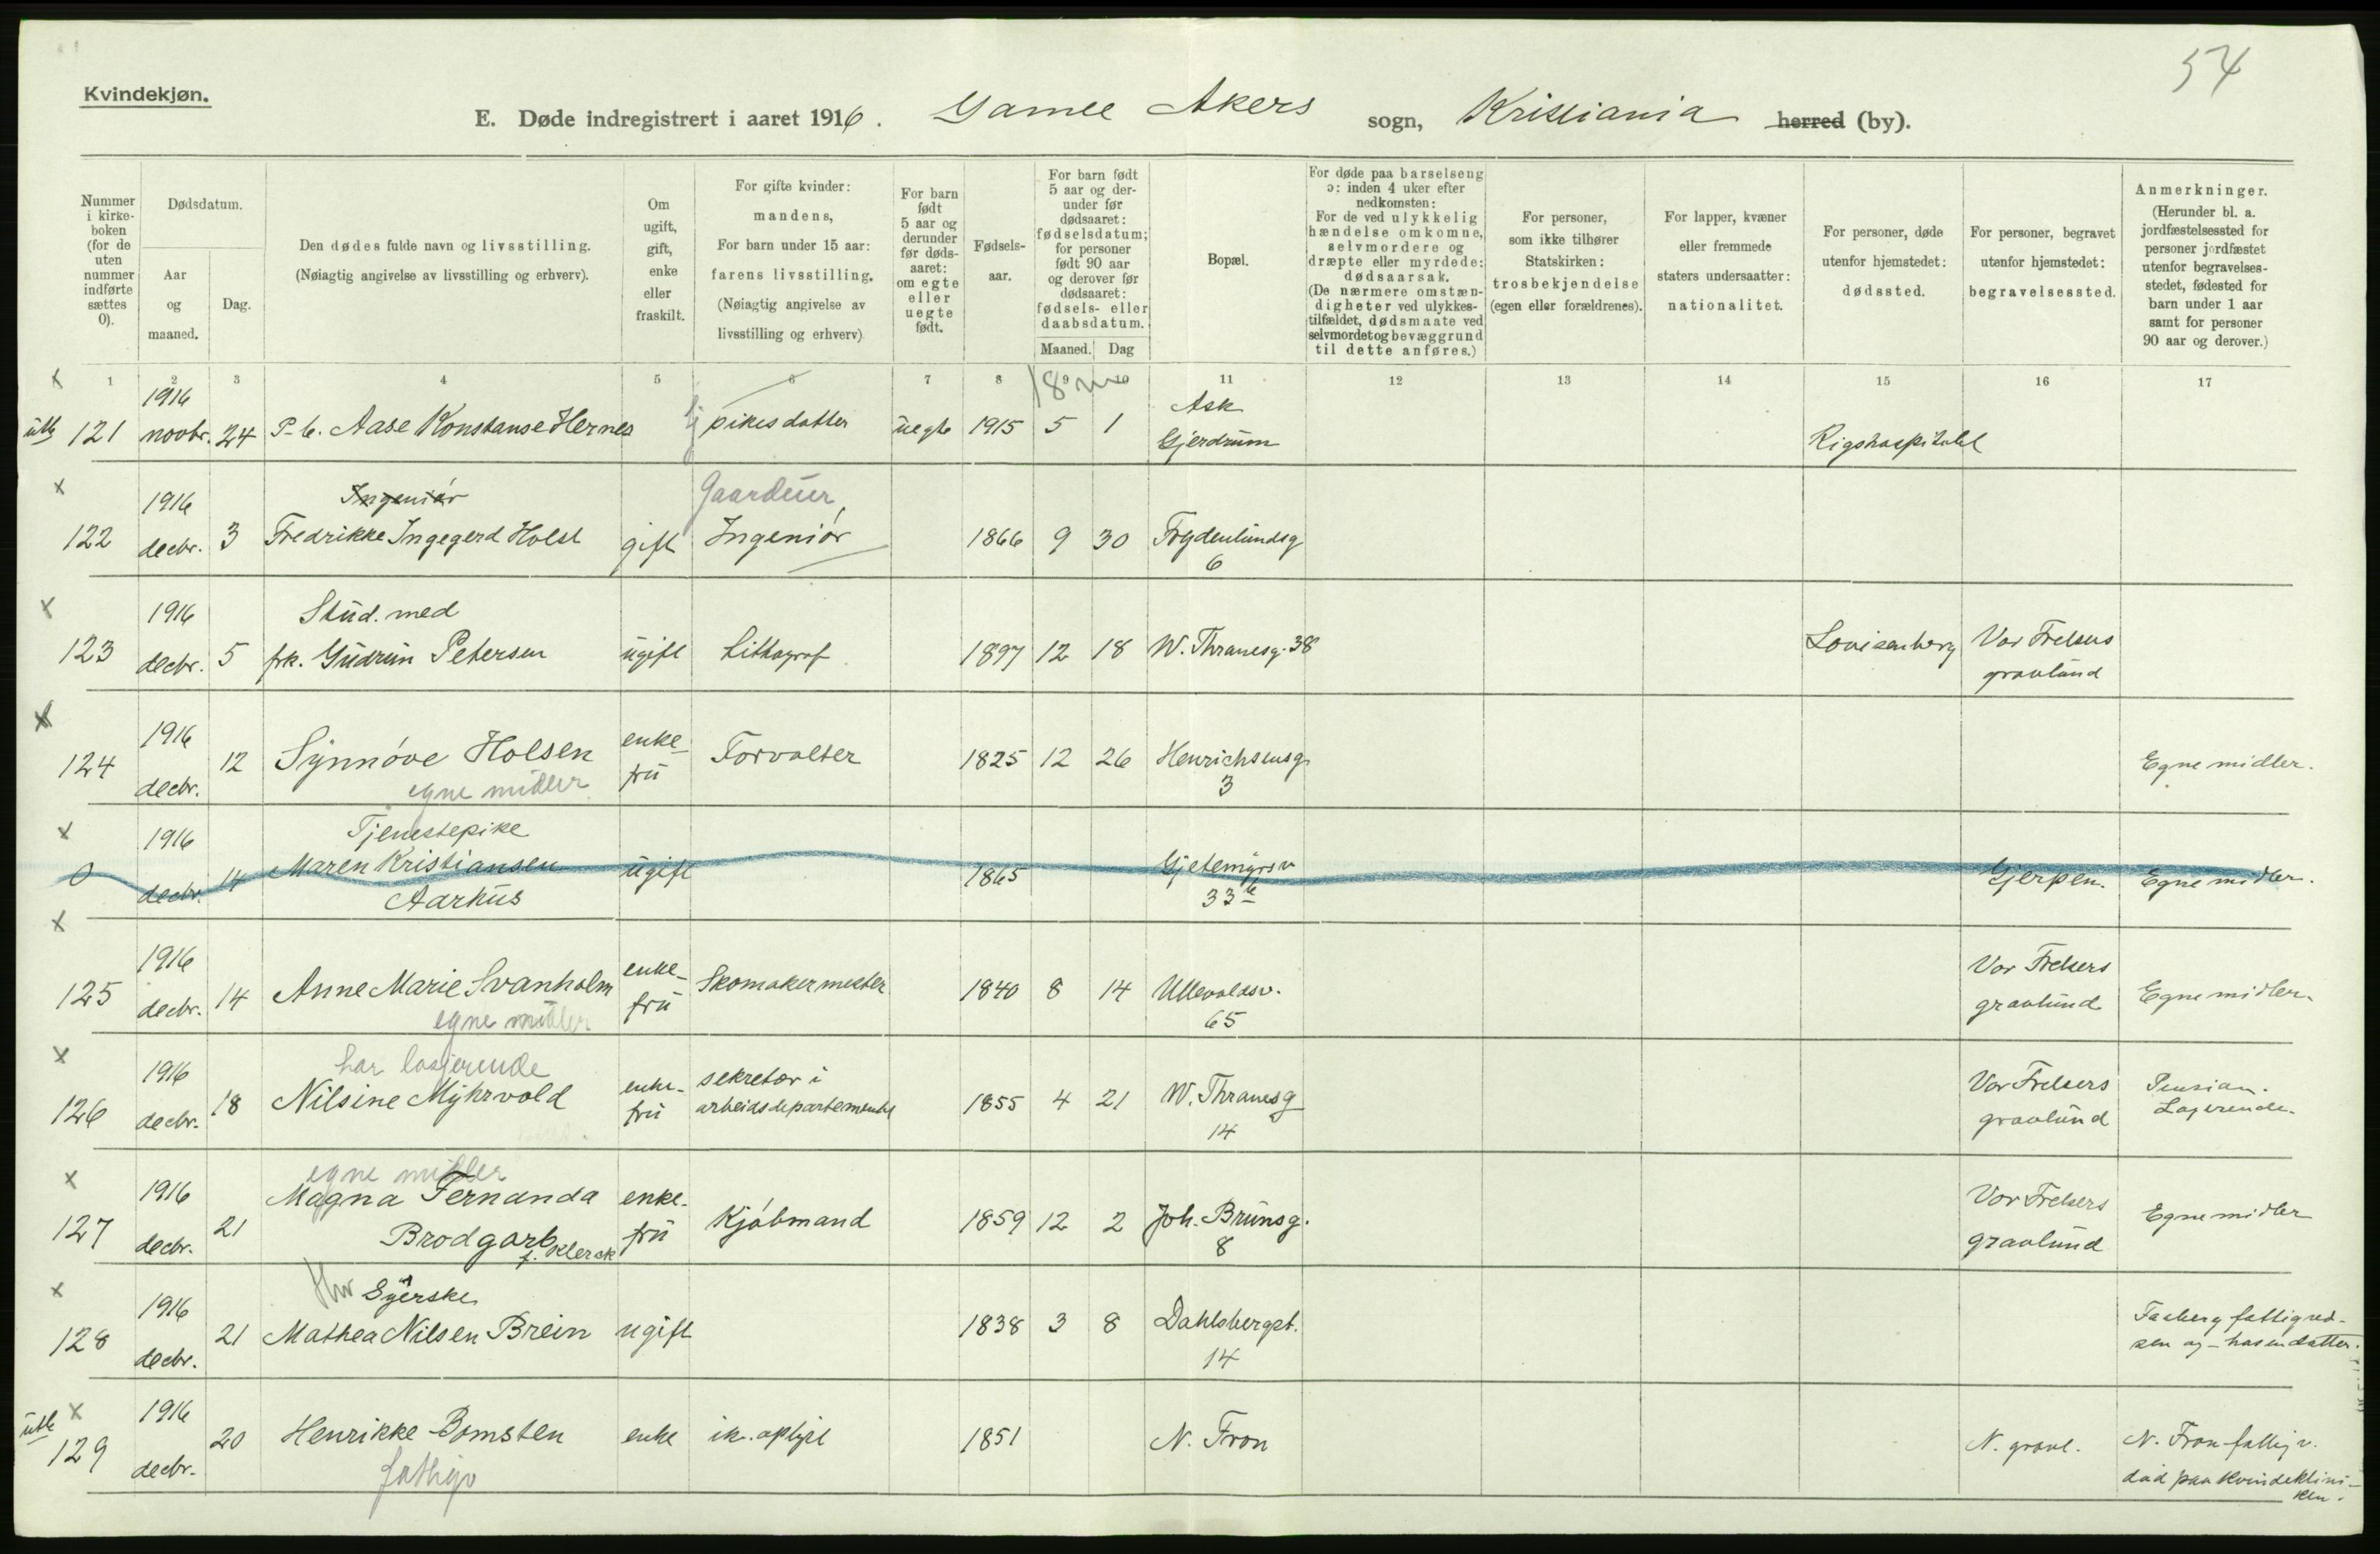 54
Kvindekjøn.
E. Døde indregistrert i aaret 1916. Gamle Akers sogn, Kristiania herred (by).
Nummer i kirke-boken (for de uten nummer indførte sættes 0).
Dødsdatum.
Aar og maaned.
Dag.
Den dødes fulde navn og livsstilling.
(Nøiagtig angivelse av livsstilling og erhverv).
Om ugift, gift, enke eller fraskilt.
For gifte kvinder: mandens,
For barn under 15 aar: farens livsstilling.
(Nøiagtig angivelse av livsstilling og erhverv)
For barn født 5 aar og derunder før døds-aaret: om egte eller uegte født.
Fødsels-aar.
For barn født 5 aar og der-under før dødsaaret: fødselsdatum; for personer født 90 aar og derover før dødsaaret: fødsels- eller daabsdatum.
Maaned. Dag
Bopæl.
For døde paa barselseng ɔ: inden 4 uker efter nedkomsten:
For de ved ulykkelig hændelse omkomne, selvmordere og dræpte eller myrdede: dødsaarsak.
(De nærmere omstæn-digheter ved ulykkes-tilfældet, dødsmaate ved selvmordet og bevæggrund til dette anføres.)
For personer, som ikke tilhører Statskirken: trosbekjendelse (egen eller forældrenes).
For lapper, kvæner eller fremmede staters undersaatter: nationalitet.
For personer, døde utenfor hjemstedet: dødssted.
For personer, begravet utenfor hjemstedet: begravelsessted.
Anmerkninger.
(Herunder bl. a. jordfæstelsessted for personer jordfæstet utenfor begravelses-stedet, fødested for barn under 1 aar samt for personer 90 aar og derover.)
x 1 2 3 4 5 6 7 8 9 10 11 12 13 14 15 16 17
18 m
1916 Ask
utb 121 novbr. 24 P-b. Aase Konstanse Hernes pikes datter uegte 1915 5 1 Gjerdrum Rigshospitalet
x 1916 Ingeniør Gaardeier,
122 decbr. 3 Fredrikke Ingegerd Holst gift Ingeniør 1866 9 30 Frydenlundsg
6
x 1916 Stud. med
123 decbr. 5 frk. Gudrun Petersen ugift Littograf 1897 12 18 W. Thranesg. 38 Lovisenberg Vor Frelsers
gravlund
x 1916 enke-
124 decbr. 12 Synnøve Holsen fru Forvalter 1825 12 26 Henrichsensg. Egne midler.
egne midler 3
x 1916 Tjenestepike
0 decbr. 14 Maren Kristiansen ugift 1865 Gjetemyrsv Gjerpen. Egne midler.
Aarhus 33 b
x 1916 enke- Vor Frelsers
125 decbr. 14 Anne Marie Svanholm fru Skomakermester 1840 8 14 Ullevoldsv. gravlund Egne midler.
egne midler 65
x 1916 har losjerende enke- sekretær i Vor Frelsers Pension.
126 decbr. 18 Nilsine Myhrvold fru arbeidsdepartementet 1855 4 21 W. Thranesg gravlund Losjerende.
14
x 1916 egne midler
127 decbr. 21 Magna Fernanda enke- Kjøbmand 1859 12 2 Joh. Brunsg. Vor Frelsers Egne midler
Brodgarb fru 8 gravlund
f. Klerck
x 1916 Syerske
128 decbr. 21 Mathea Nilsen Brein ugift 1838 3 8 Dahlsbergst. Faaberg fattigvæ-
14 sen og - hos en datter.
utb x 1916
129 decbr. 20 Henrikke Bomsten enke ik. oplyst 1851 N. Fron N. gravl. N. Fron fattigv.
fattigv død paa Kvindeklini-
ken.